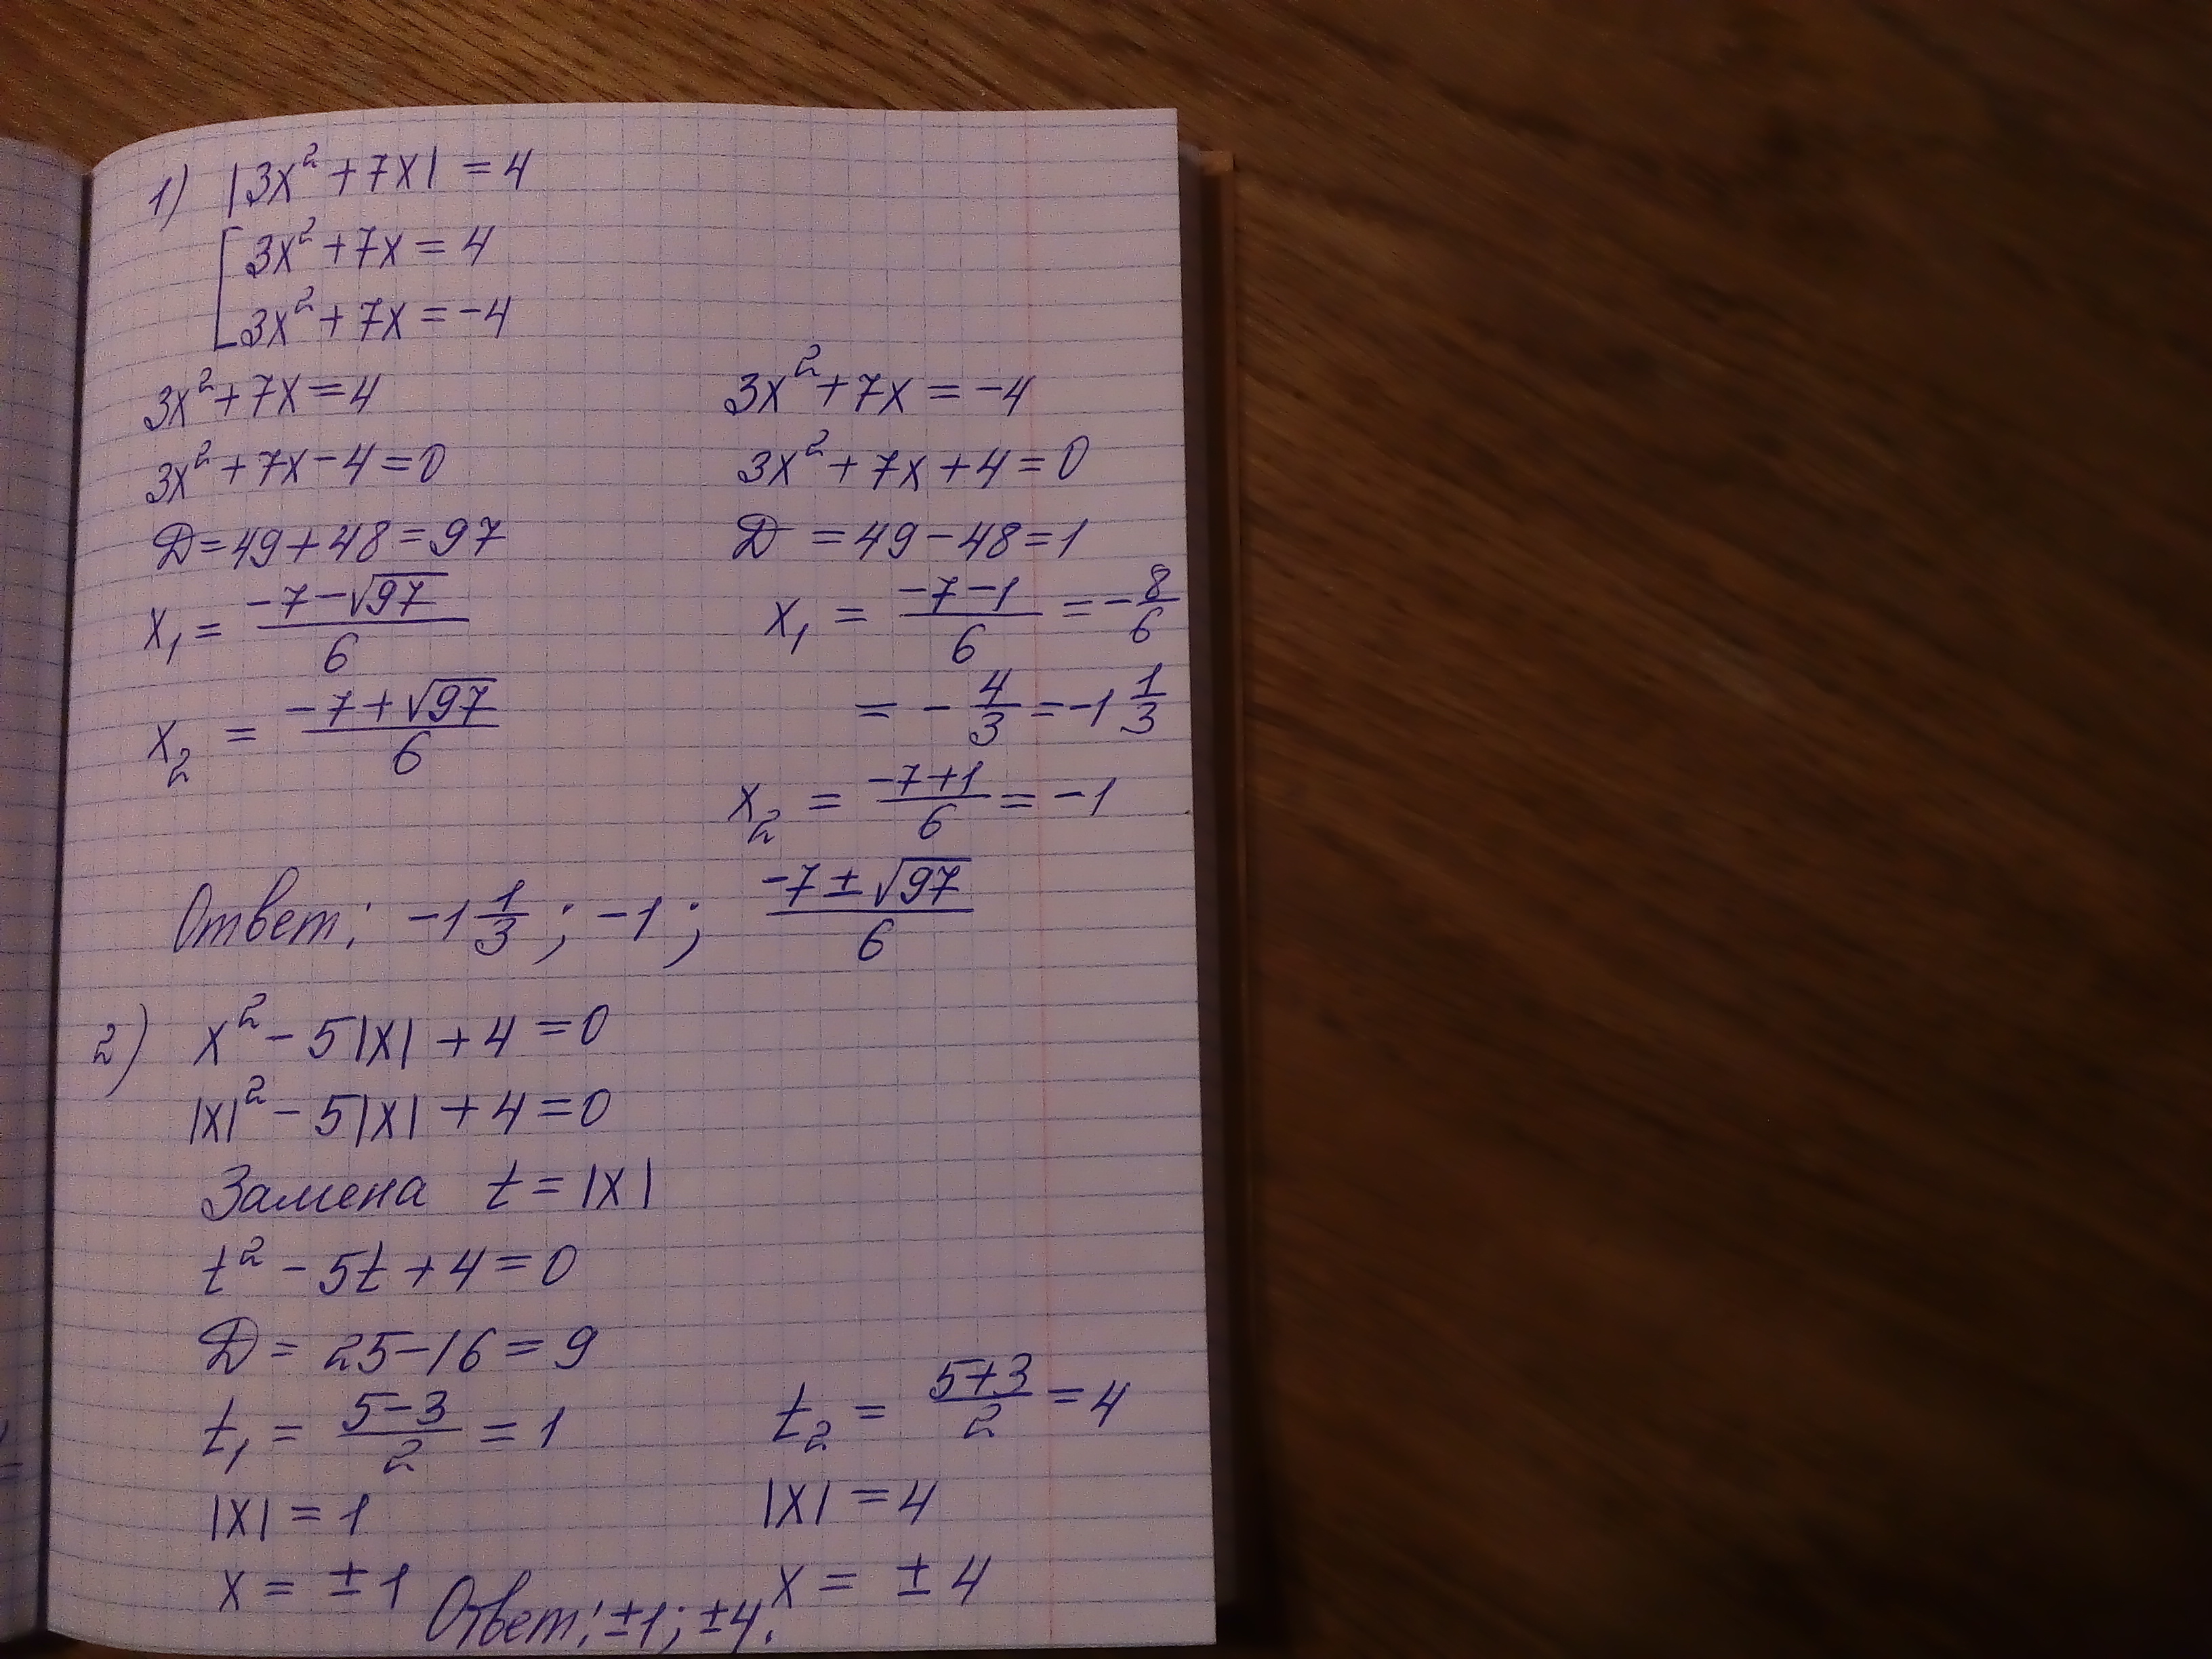 1) |3x² + 7x| = 4
[ 3x² + 7x = 4
3x² + 7x = -4
3x² + 7x = 4
3x² + 7x - 4 = 0
D = 49 + 48 = 97
x₁ = (-7 - √97)/6
x₂ = (-7 + √97)/6
3x² + 7x = -4
3x² + 7x + 4 = 0
D = 49 - 48 = 1
x₁ = (-7 - 1)/6 = -8/6
= -4/3 = -1 1/3
x₂ = (-7 + 1)/6 = -1
Ответ: -1 1/3; -1; (-7 ± √97)/6
2) x² - 5|x| + 4 = 0
|x|² - 5|x| + 4 = 0
Замена t = |x|
t² - 5t + 4 = 0
D = 25 - 16 = 9
t₁ = (5 - 3)/2 = 1
|x| = 1
x = ±1
t₂ = (5 + 3)/2 = 4
|x| = 4
x = ±4
Ответ: ±1; ±4.